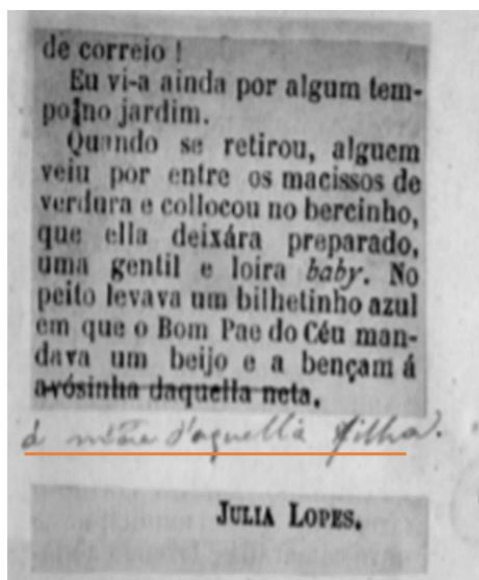 de correio !
Eu vi-a ainda por algum tem-
po no jardim.
Quando se retirou, alguem
veiu por entre os macissos de
verdura e collocou no bercinho,
que ella deixára preparado,
uma gentil e loira baby. No
peito levava um bilhetinho azul
em que o Bom Pae do Céu man-
dava um beijo e a bençam á
avósinha daquella neta.
á mãe d'aquella filha.
JULIA LOPES.